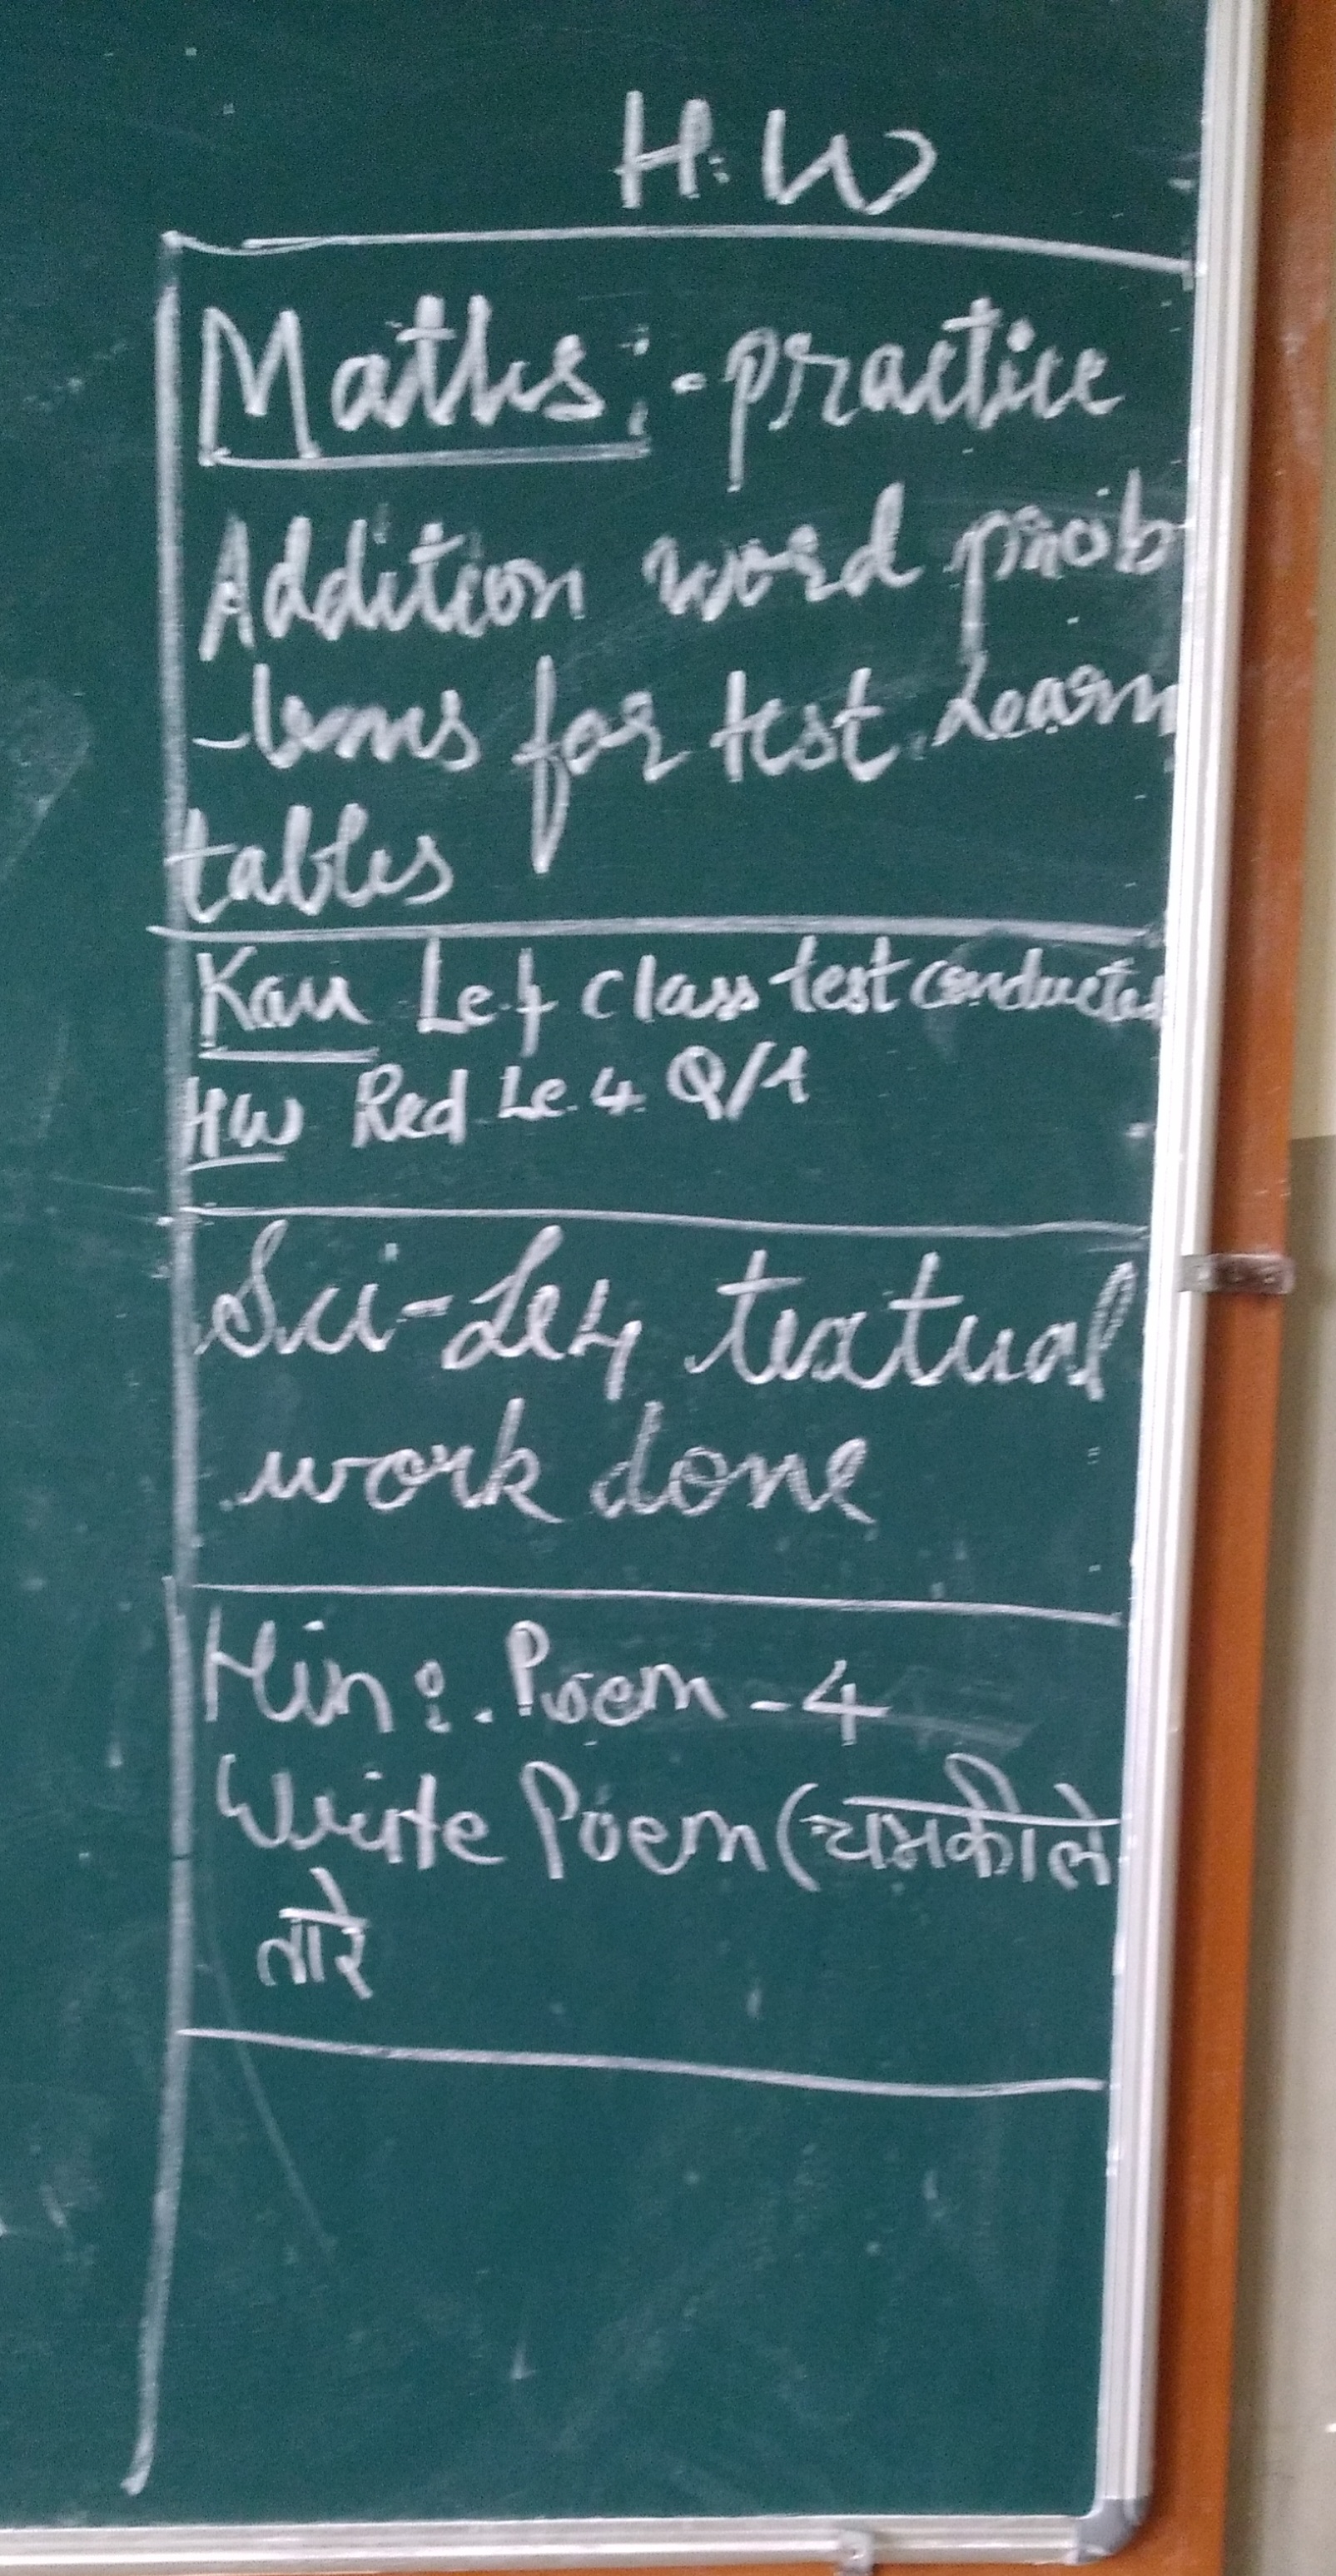 H.W
Maths:- practice
Addition word prob
-lems for test. Learn
tables
Kan Le 4 class test conducted
HW Read Le. 4. Q/A
Sci-Le4 textual
work done
Hin:. Poem - 4
Write Poem (चमकीले
तारे